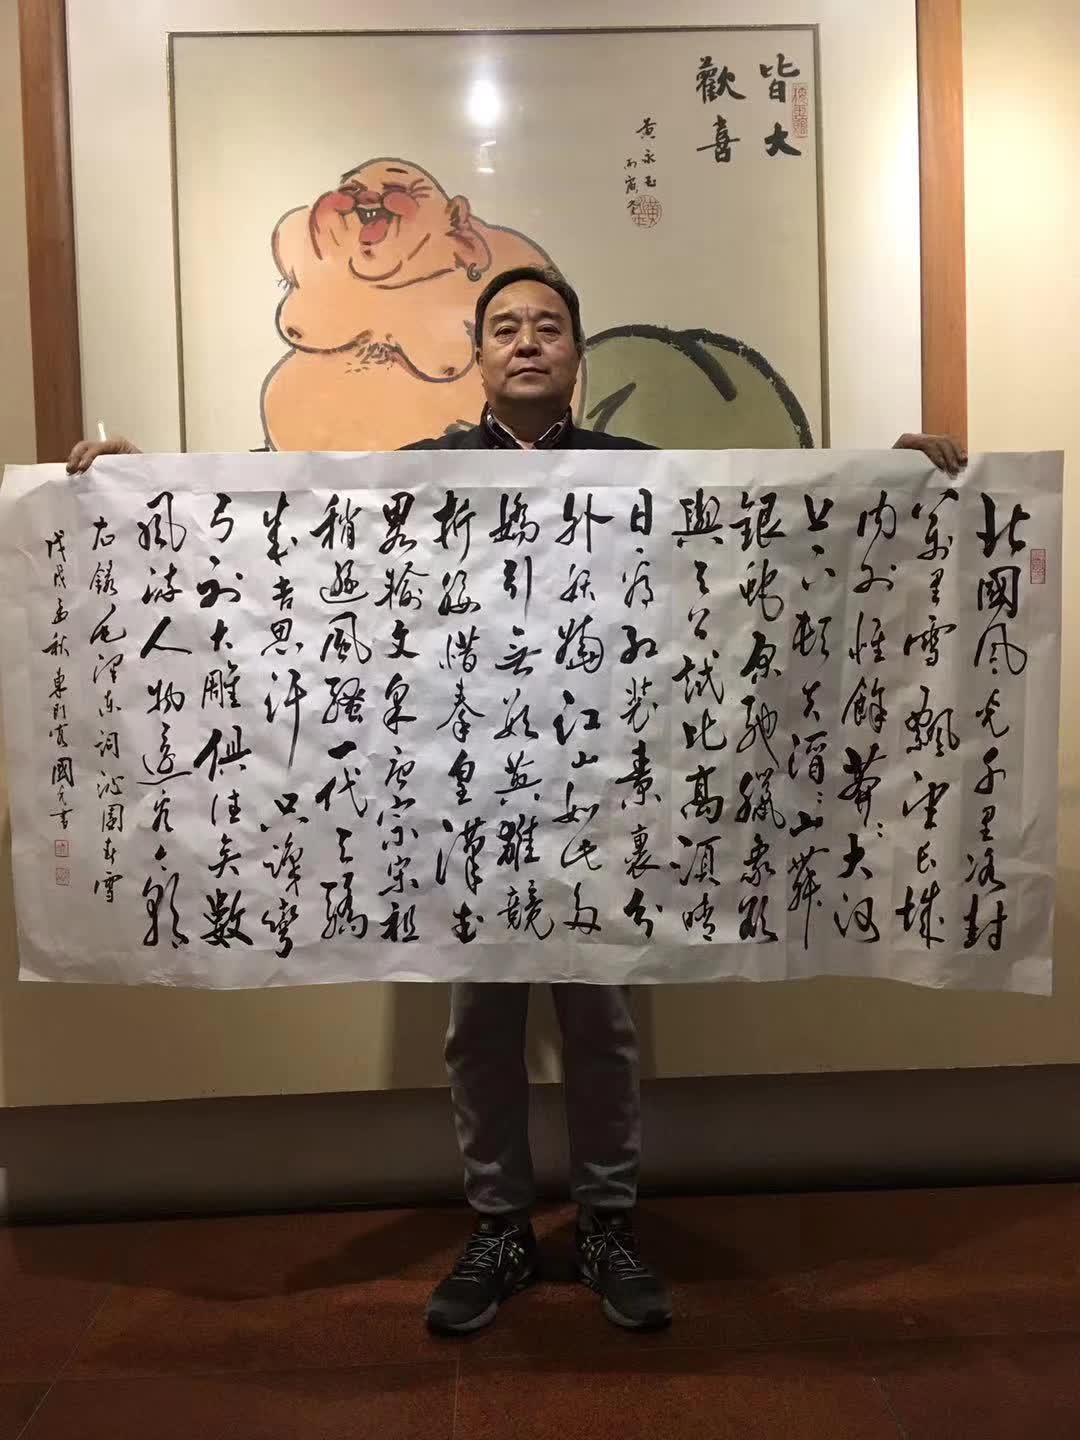 皆大
歡喜
黄永玉
丙寅冬
北國風光千里冰封
萬里雪飄望長城
内外惟餘莽〻大河
上下頓失滔〻山舞
銀蛇原馳臘象欲
與天公試比高須晴
日看紅裝素裹分
外妖嬈江山如此多
嬌引無數英雄競
折腰惜秦皇漢武
畧輸文采唐宗宋祖
稍遜風騷一代天驕
成吉思汗只識彎
弓射大雕俱往矣數
風流人物還看今朝
右錄毛澤東詞沁園春雪
戊戌孟秋東國書